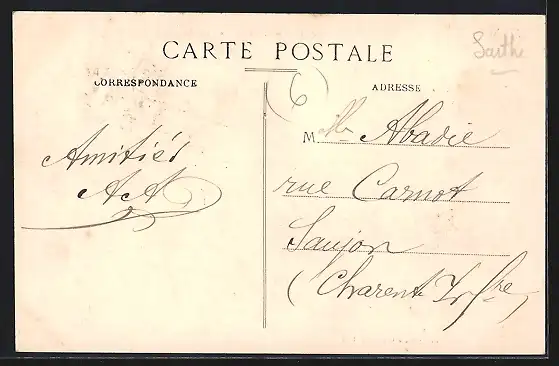 CARTE POSTALE
Sarthe
(6)
CORRESPONDANCE
ADRESSE
Amitiés
AA
Mlle Abadie
rue Carnot
Saujon
(Charente Infre)